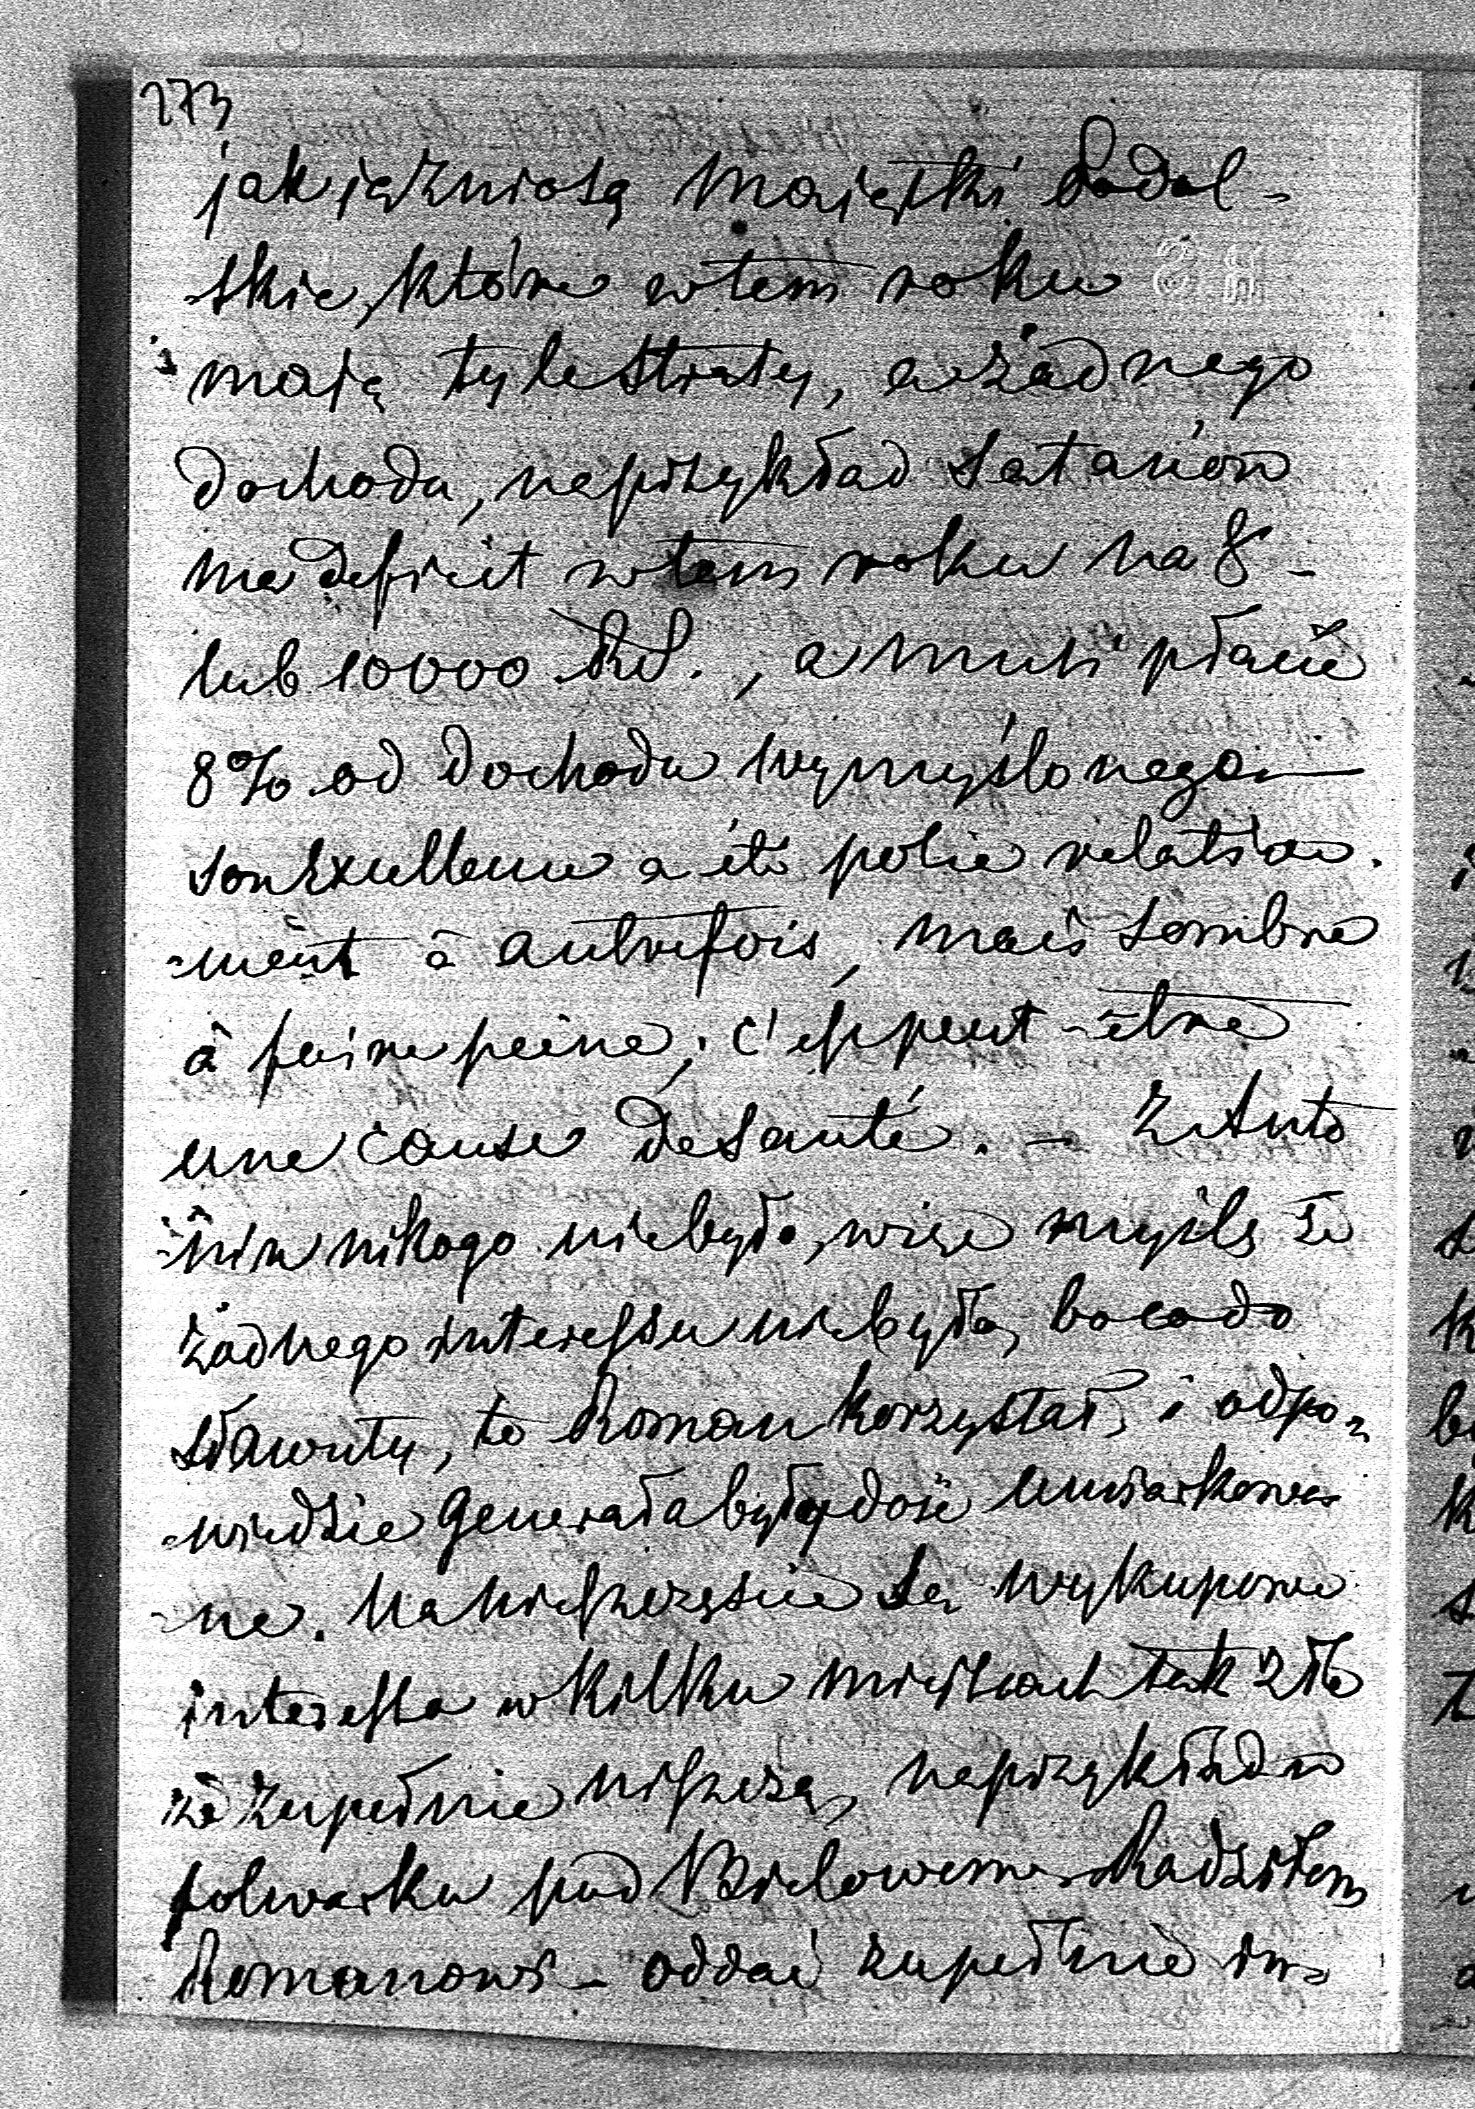 273
jak ją zniosą Majątki Podol-
-skie, które w tem roku
mają tyle straty, a żadnego
dochodu, naprzykład Satanów
ma deficit w tem roku na 8 -
lub 10000 RS., a musi płacić
8% od dochodu wymyślonego —
son Excellence a été polie relative-
-ment à autrefois, mais sombre
à faire peine; c'est peut-être
une cause de santé. — Z Anto
-nin nikogo niebyło, więc myślę że
żadnego interessu niebyło, bo co do
Sławuty, to Roman korzystał, i odpo-
-wiedzie Generała były dość umiarkowa
-ne. Na nieszczęście są wykupowe
interessa w kilku miejscach tak złe
że zupełnie niszczą, naprzykład w
folwarku pod Bielowem radziłem
Romanowi — oddać zupełnie in-